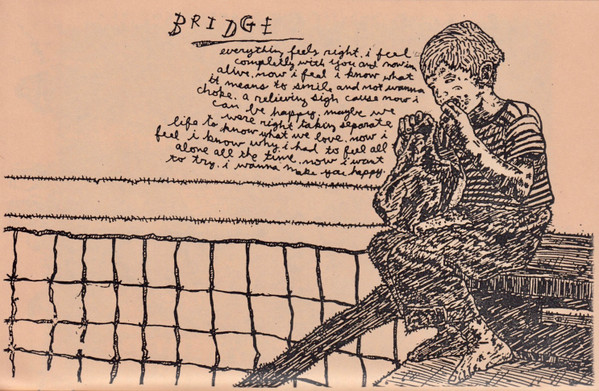 BRIDGE
everything feels right. i feel
completly with you and now im
alive. now i feel i know what
it means to smile and not wanna
choke. a relieving sigh cause now i
can be happy. maybe we
were right taking separate
life to know what we love. now i
feel i know why i had to feel all
alone all the time. now i want
to try. i wanna make you happy.